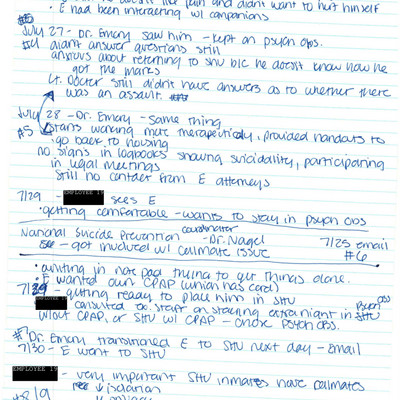 doesn't like pain and didn't want to hurt himself
• E had been interacting w/ companions
July 27 - Dr. Emery saw him - kept on psych obs.
#4 didnt answer questions still
anxious about returning to shu b/c he doesn't know how he
got the marks
Lt. Doctor still didn't have answers as to whether there
was an assault.
July 28 - Dr. Emery - Same thing
#5 starts working more therapeutically, provided handouts to
go back to housing
no signs in logbooks showing suicidality, participating
in legal meetings
Still no contact from E attorneys
7/29 - EMPLOYEE 19 sees E
• getting comfortable - wants to stay in psych obs
National Suicide Prevention coordinator - Dr. Nagel 7/25 email
- got involved w/ cellmate issue #6
• writing in note pad trying to get things done.
• E wanted own CPAP (unian has card)
7/29 - getting ready to place him in SHU
consulted to staff on staying extra night in psych obs
w/out CPAP, or SHU w/ CPAP - chose psych obs.
#7 Dr. Emery transitioned E to SHU next day - email
7/30 - E went to SHU
EMPLOYEE 19 - very important SHU inmates have cellmates
8/9 isolation